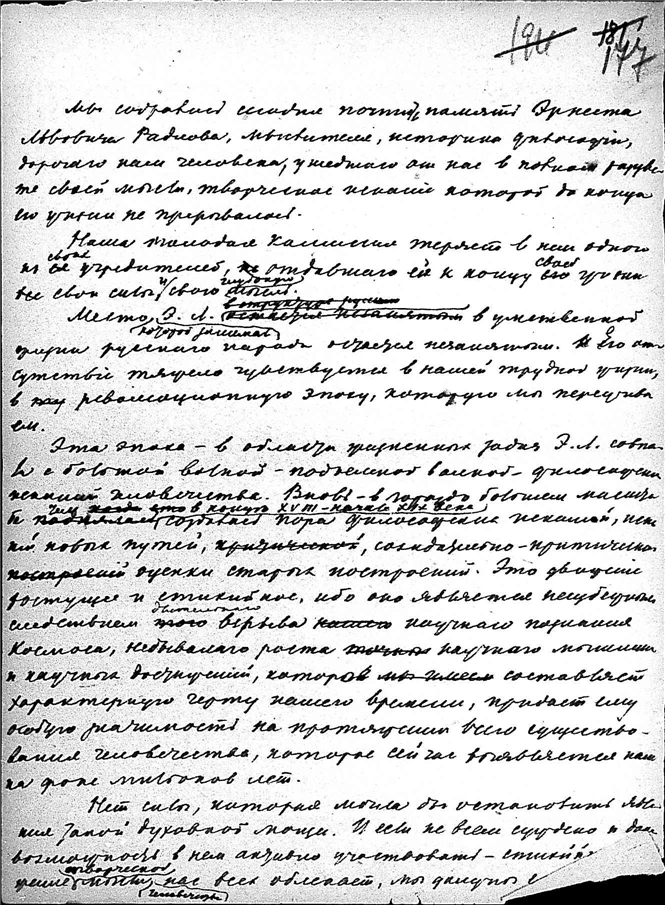 177
Мы собрались сегодня почтить память Эрнеста
Львовича Радлова, мыслителя, историка философии,
дорогого нам человека, ушедшего от нас в полном расцве-
те своей мысли, творческое искание которой до конца
его жизни не прерывалось.
Наша молодая Комиссия теряет в нем одного
из своих учредителей, отдавшего ей к концу своей жизни
все свои силы и свою мысль.
Место, Э. Л. в умственной
который занимал
жизни русского народа остается незанятым. Его от-
сутствие тяжело чувствуется в нашей трудной жизни,
в революционную эпоху, которую мы пережива
ем.
Эта эпоха – в области жизненных задач Э. Л. совпа-
ла с большой волной – подъемной волной – философских
исканий человечества. Вновь – в гораздо большем масшта-
бе чем в конце XVIII – начале XIX века
создалась пора философских исканий, иска-
ний новых путей, созидательно-критической
оценки старых построений. Это движение
растущее и стихийное, ибо оно является неизбежным
следствием взрыва научного познания
Космоса, небывалого роста научного мышления
и научных достижений, которое составляет
характерную черту нашего времени, придает ему
особую значимость на протяжении всего существо-
вания человечества, которое сейчас выявляется нам
на фоне миллионов лет.
Нет силы, которая могла бы остановить явле-
ния такой духовной мощи. И если не всем суждено и дана
возможность в нем активно участвовать – стихий
творческой
мысли нас всех облекает, мы должны
человечества